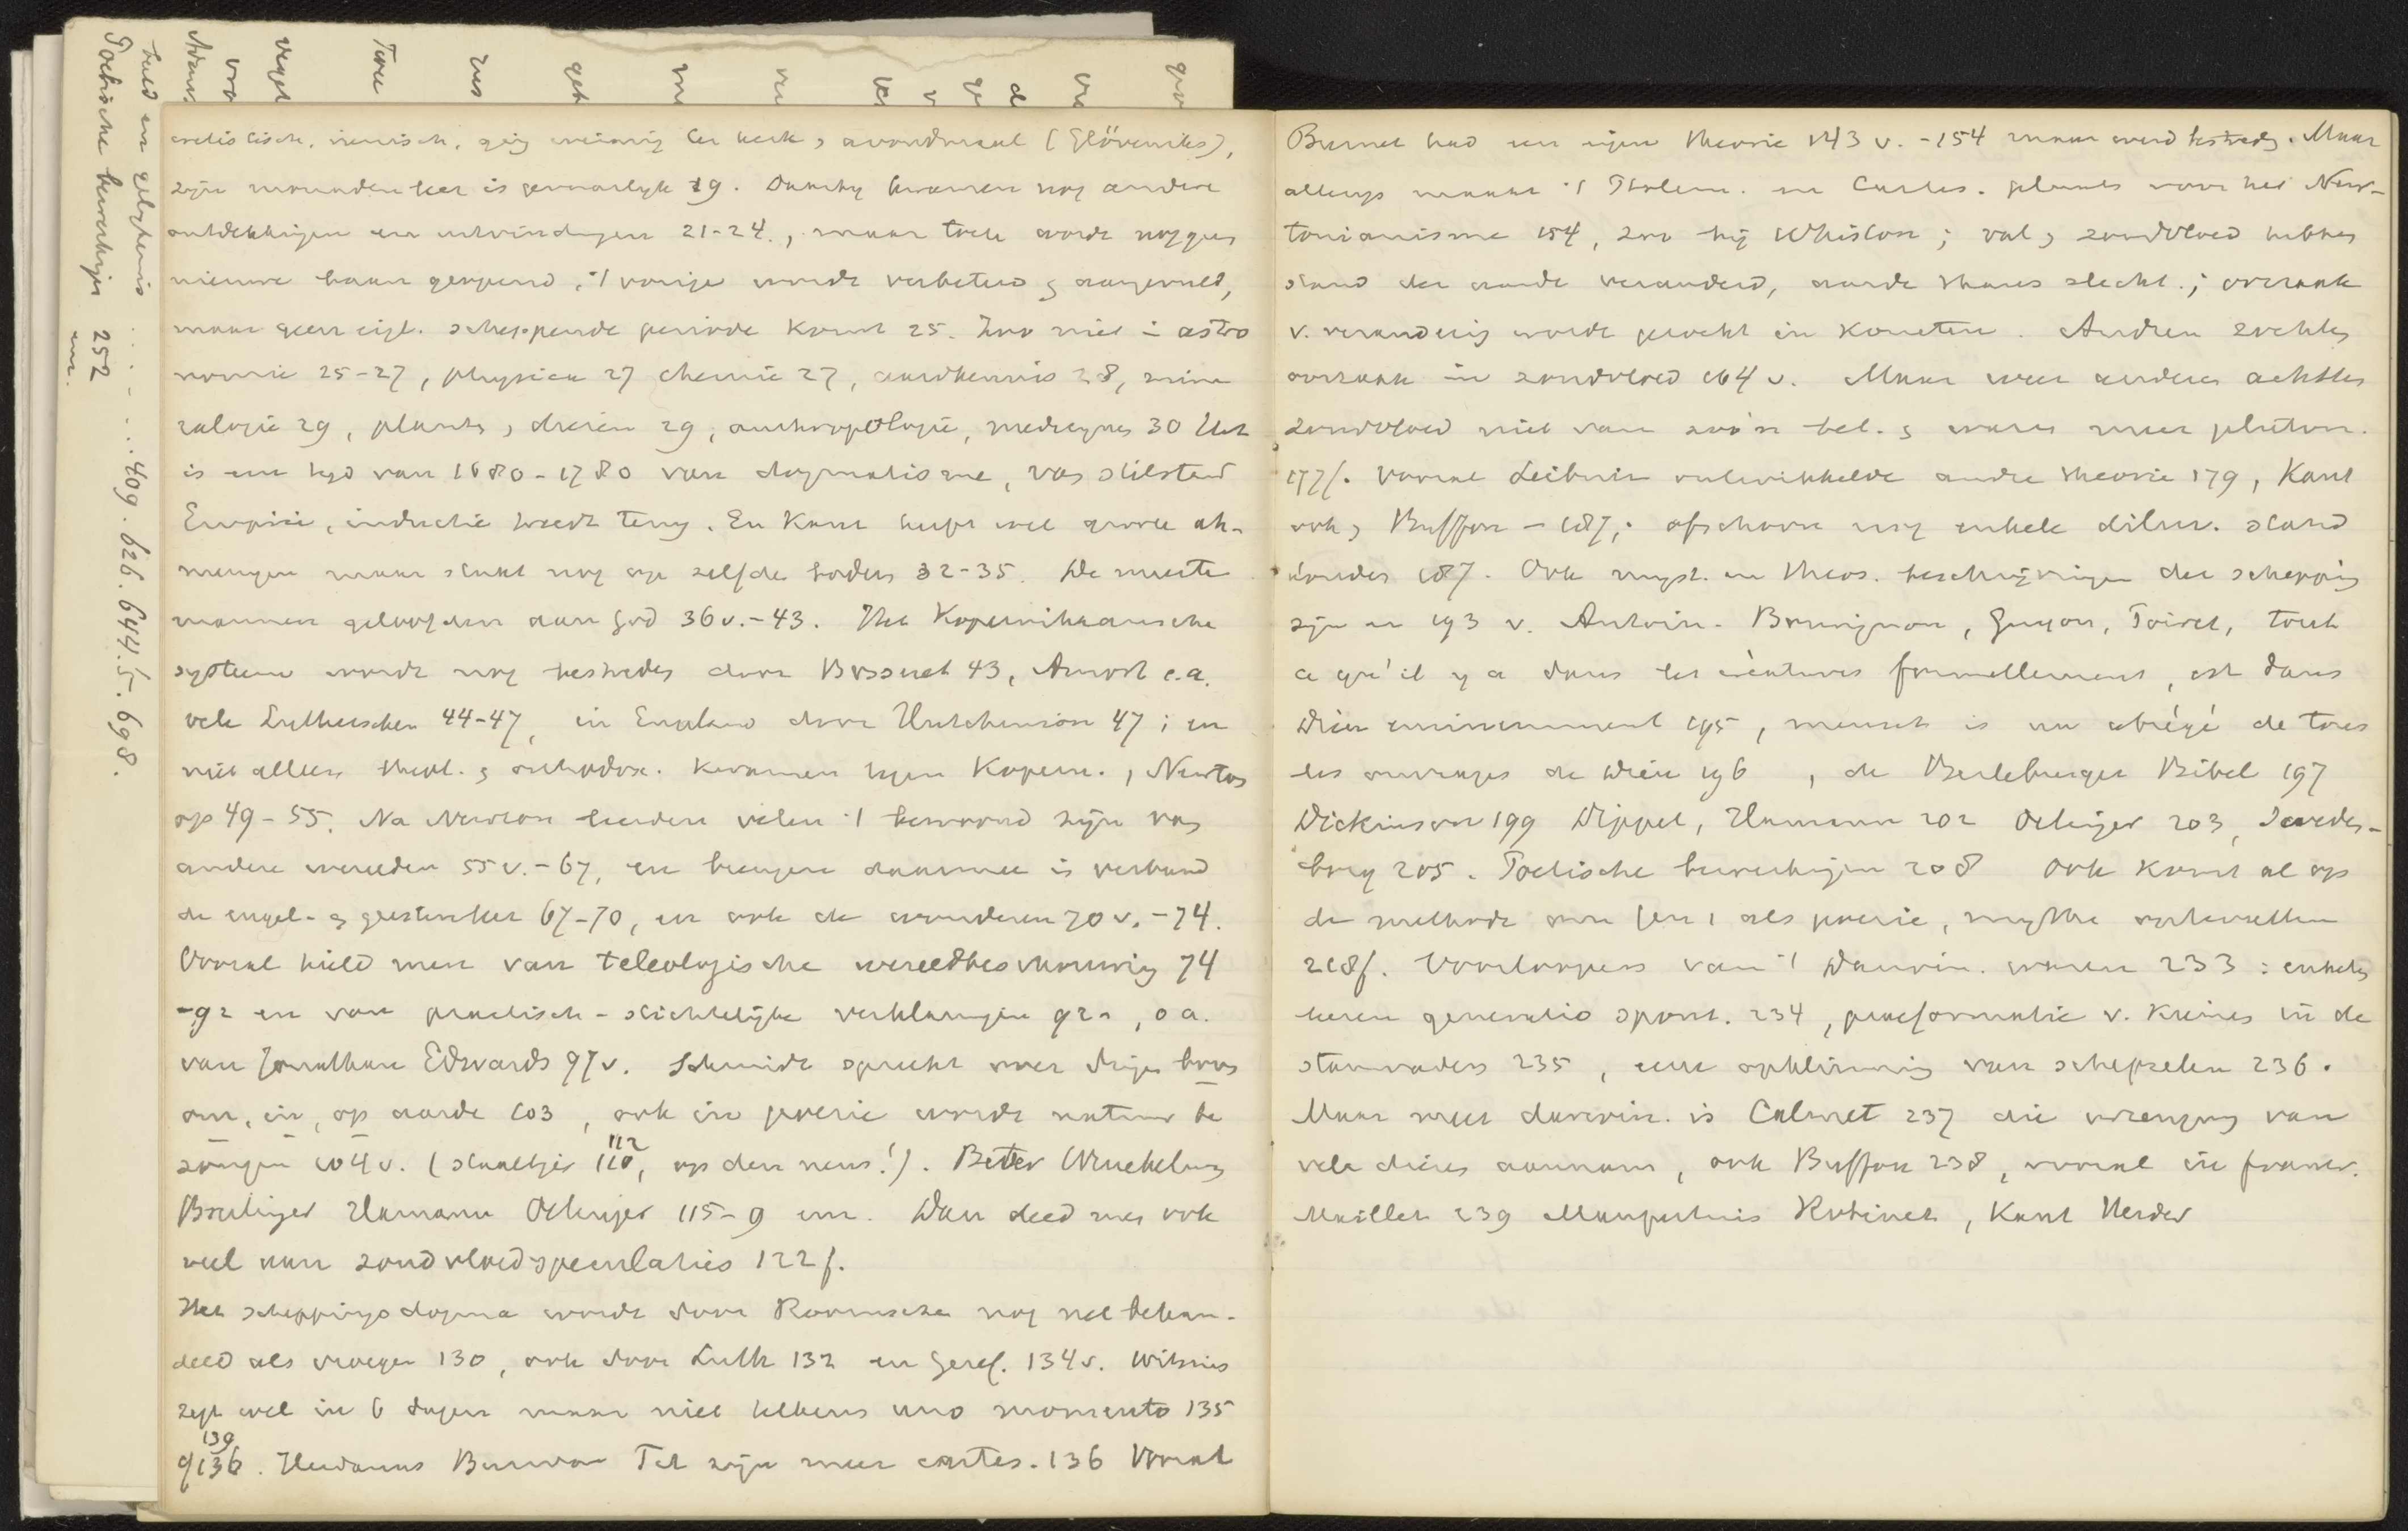 Poetische bewerkingen 252
enz.
beeld en gelijkenis . . . - . . . 409. 626. 644.5. 698.
cretistisch, ging weinig ter kerk, avondmaal (Glöveniks),
zijn monadenleer is gevaarlijk 19. Daarbij kwamen nog andere
ontdekkingen en uitvindingen 21-24., maar toch wordt nog geen
nieuwe baan geopend, 't vorige wordt verbeterd en aangevuld,
maar geen eigl. scheppende periode komt 25. Zoo niet in astro
nomie 25-27, physica 27 chemie 27, aardkennis 28, mine
ralogie 29, planten, dieren 29, anthropologie, medicynen 30 Het
is een tijd van 1680-1780 van dogmatisme, van stilstand
Empirie, inductie treedt terug. En Kant heeft wel groote ah-
nungen maar staat nog op zelfde bodem 32-35. De meeste
mannen geloofden aan God 36 v.-43. Het Kopernikaansche
systeem wordt nog bestreden door Bossuet 43, Amort e.a.
vele Lutherschen 44-47, in Engeland door Hutchinson 47; en
niet alleen theol. en orthodox. kwamen tegen Kopern., Newton
op 49-55. Na Newton leerden velen 't bewoond zijn van
andere werelden 55 v.-67, en brengen daarmee in verband
de engel- en geestenleer 67-70, en ook de wonderen 70 v.-74.
Vooral hield men van teleologische wereldbeschouwing 74
-92 en van practisch-stichtelijke verklaringen 92-, o.a.
van Jonathan Edwards 97 v. Schmidt spreekt over dingen boven
om, in, op aarde 103, ook in poezie wordt natuur be
zongen 104 v. (staaltjes 110, 112 op den neus!). Beter
Hamann Oetinger 115-9 enz. Dan deed men ook
veel aan zondvloedspeculaties 122 f.
Het scheppingsdogma wordt door Roomsche nog net behan-
deld als vroeger 130, ook door Luth 132 en Geref. 134 v. Witsius
zegt wel in 6 dagen maar niet telkens uno momento 135
of 136. 139 Heidanus Burman Til zijn meer cartes. 136 Vooral
Burnet had een eigen theorie 143 v. -154 maar werd bestreden. Maar
allengs maakt 't Ptolem. en Cartes. plaats voor het New-
tonianisme 154, zoo bij Whiston; val en zondvloed hebben
stand der aarde veranderd, aarde thans slecht.; oorzaak
v. verandering wordt gezocht in kometen. Andren zochten
oorzaak in zondvloed 164 v. Maar weer anderen achtten
zondvloed niet van zoo'n bel. en waren meer pluton.
177 f. Vooral Leibniz ontwikkelde andre theorie 179, Kant
ook, Buffon - 187, ofschoon nog enkele diluv. stand
houden 187. Ook myst. en theos. beschrijvingen der schepping
zijn er 193 v. Antoin. Bourignon, Guyon, Poiret, tout
ce qu'il y a dans les créatures formellement, est dans
Dieu eminemment 195, mensch is un abrégé de tous
les ouvrages de Dieu 196, de Berleburger Bibel 197
Dickinson 199 Dippel, Hamann 202 Oetinger 203, Sweden-
borg 205. Poetische bewerkingen 208 Ook komt al op
de methode om Gen 1 als poezie, mythe op te vatten
218 f. Voorloopers van 't Darwin. waren 233: enkelen
leeren generatio spont. 234, praeformatie v. kiemen in de
stamvaders 235, eene opklimming van schepselen 236.
Maar meer darwin. is Calmet 237 die wording van
vele dieren aannam, ook Buffon 238, vooral in Frankr.
Maillet 239 Maupertuis Robinet, Kant Herder